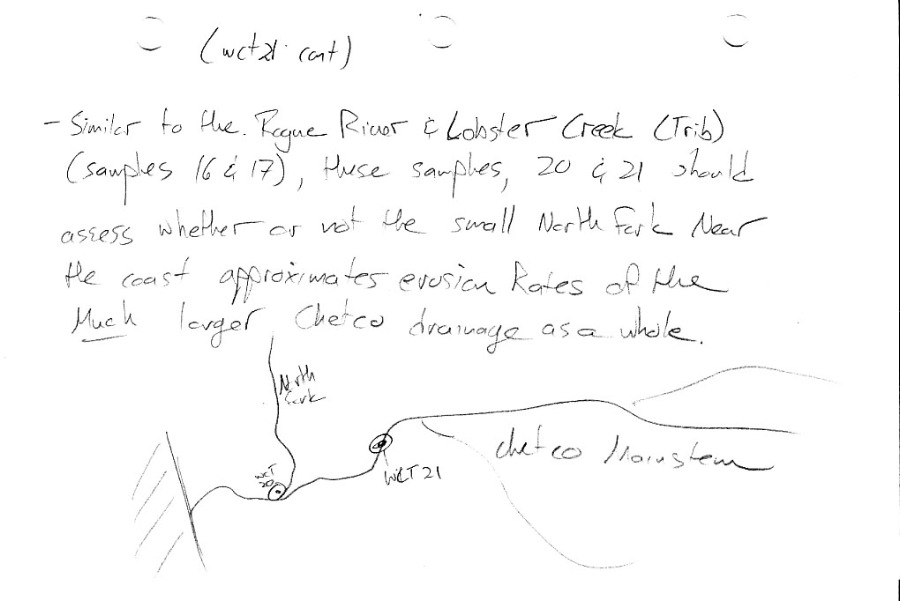 (wct21 cont)
- Similar to the Rogue River & Lobster Creek (Trib)
(samples 16 & 17), these samples, 20 & 21 should
assess whether or not the small North Fork Near
the coast approximates erosion Rates of the
Much larger Chetco drainage as a whole.
North
Fork
Chetco Mainstem
WCT
20
WCT21